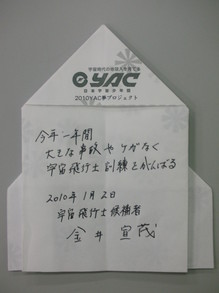 YAC
日本宇宙少年団
2010YAC夢プロジェクト
今年一年間
大きな事故やケガなく
宇宙飛行士訓練をがんばる
2010年1月2日
宇宙飛行士候補者
金井 宣茂